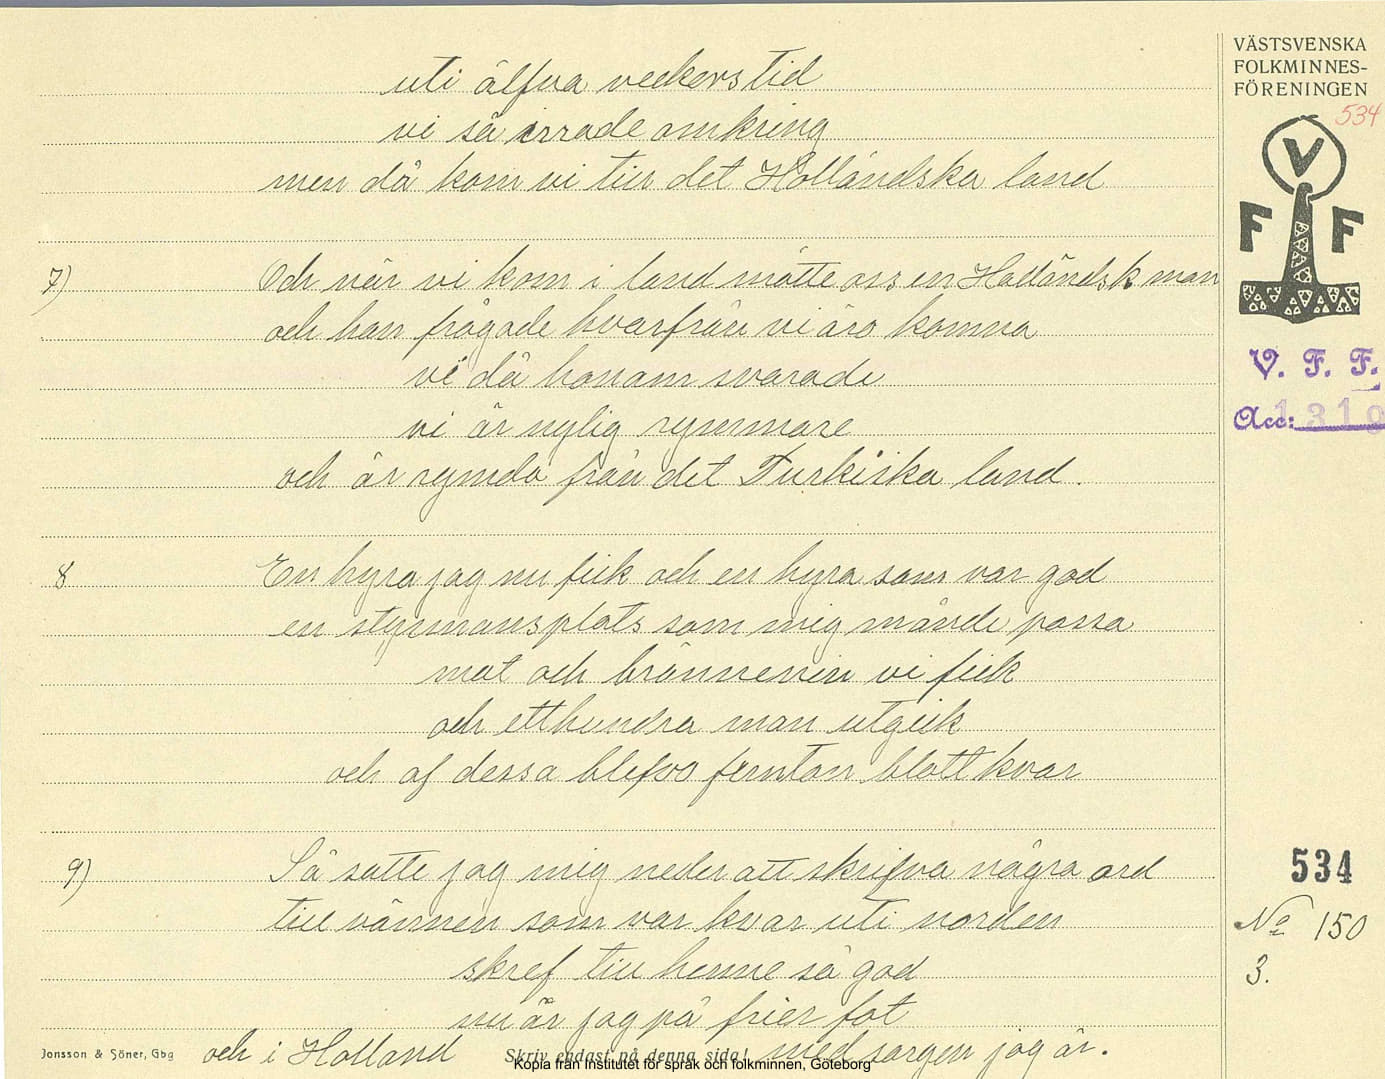 uti älfva veckors tid
vi så irrade omkring
men då kom vi till det Holländska land
7) Och när vi kom i land mötte oss en Holländsk man
och han frågade hvarfrån vi äro komna
vi då honom svarade
vi är nylig rymmare
och är rymda från det Turkiska land.
8 En hyra jag nu fick och en hyra som var god
en styrmansplats som mig månde passa
mat och brännevin vi fick
och etthundra man utgick
och af dessa blefvo femton blott kvar
9) Så satte jag mig neder att skrifva några ord
till vännen som var kvar uti norden
skref till henne så god
nu är jag på frier fot
och i Holland med sorgen jag är.
Jonsson & Söner, Gbg
Skriv endast på denna sida!
Kopia från Institutet för språk och folkminnen, Göteborg
VÄSTSVENSKA
FOLKMINNES-
FÖRENINGEN
534
V
F F
V. F. F.
Acc: 1319
534
No 150
3.